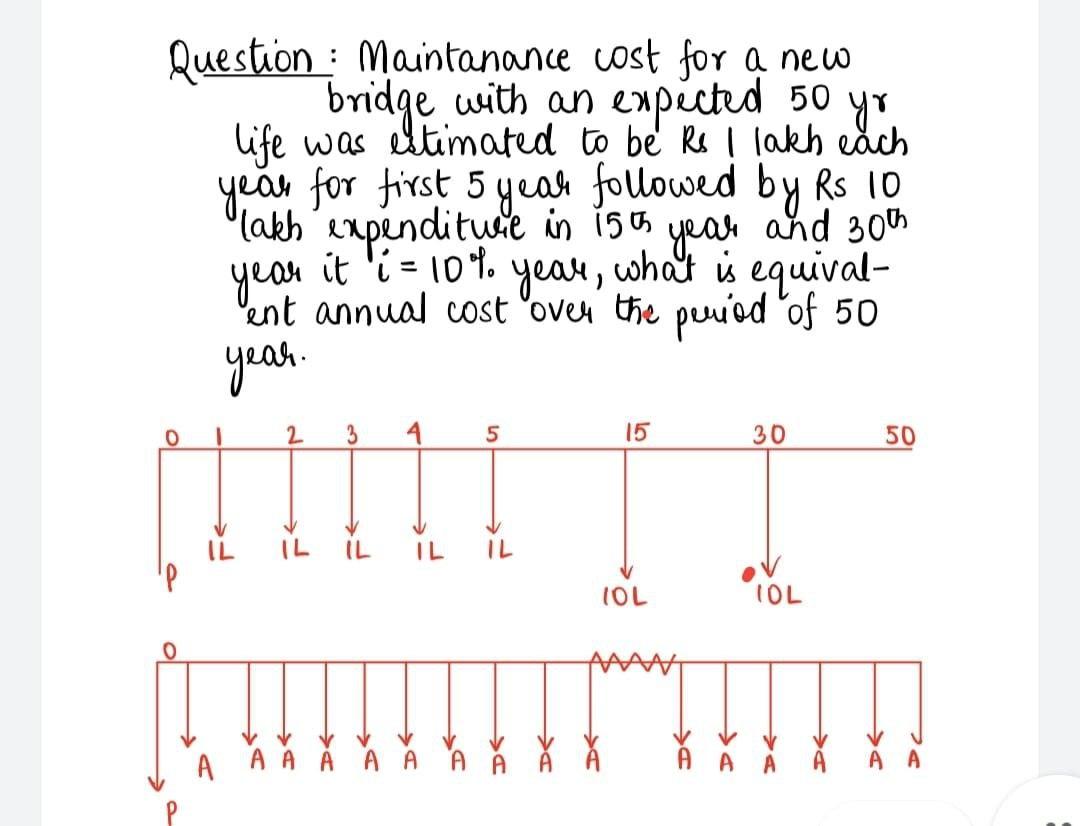 Question : Maintanance cost for a new
bridge with an expected 50 yr
life was estimated to be Rs 1 lakh each
year for first 5 year followed by Rs 10
lakh expenditure in 15th year and 30th
year it i = 10% year, what is equival-
ent annual cost over the period of 50
year.
0 1 2 3 4 5 15 30 50
1L 1L 1L 1L 1L
P
10L 10L
0
A A A A A A A A A A A A A A A A
P